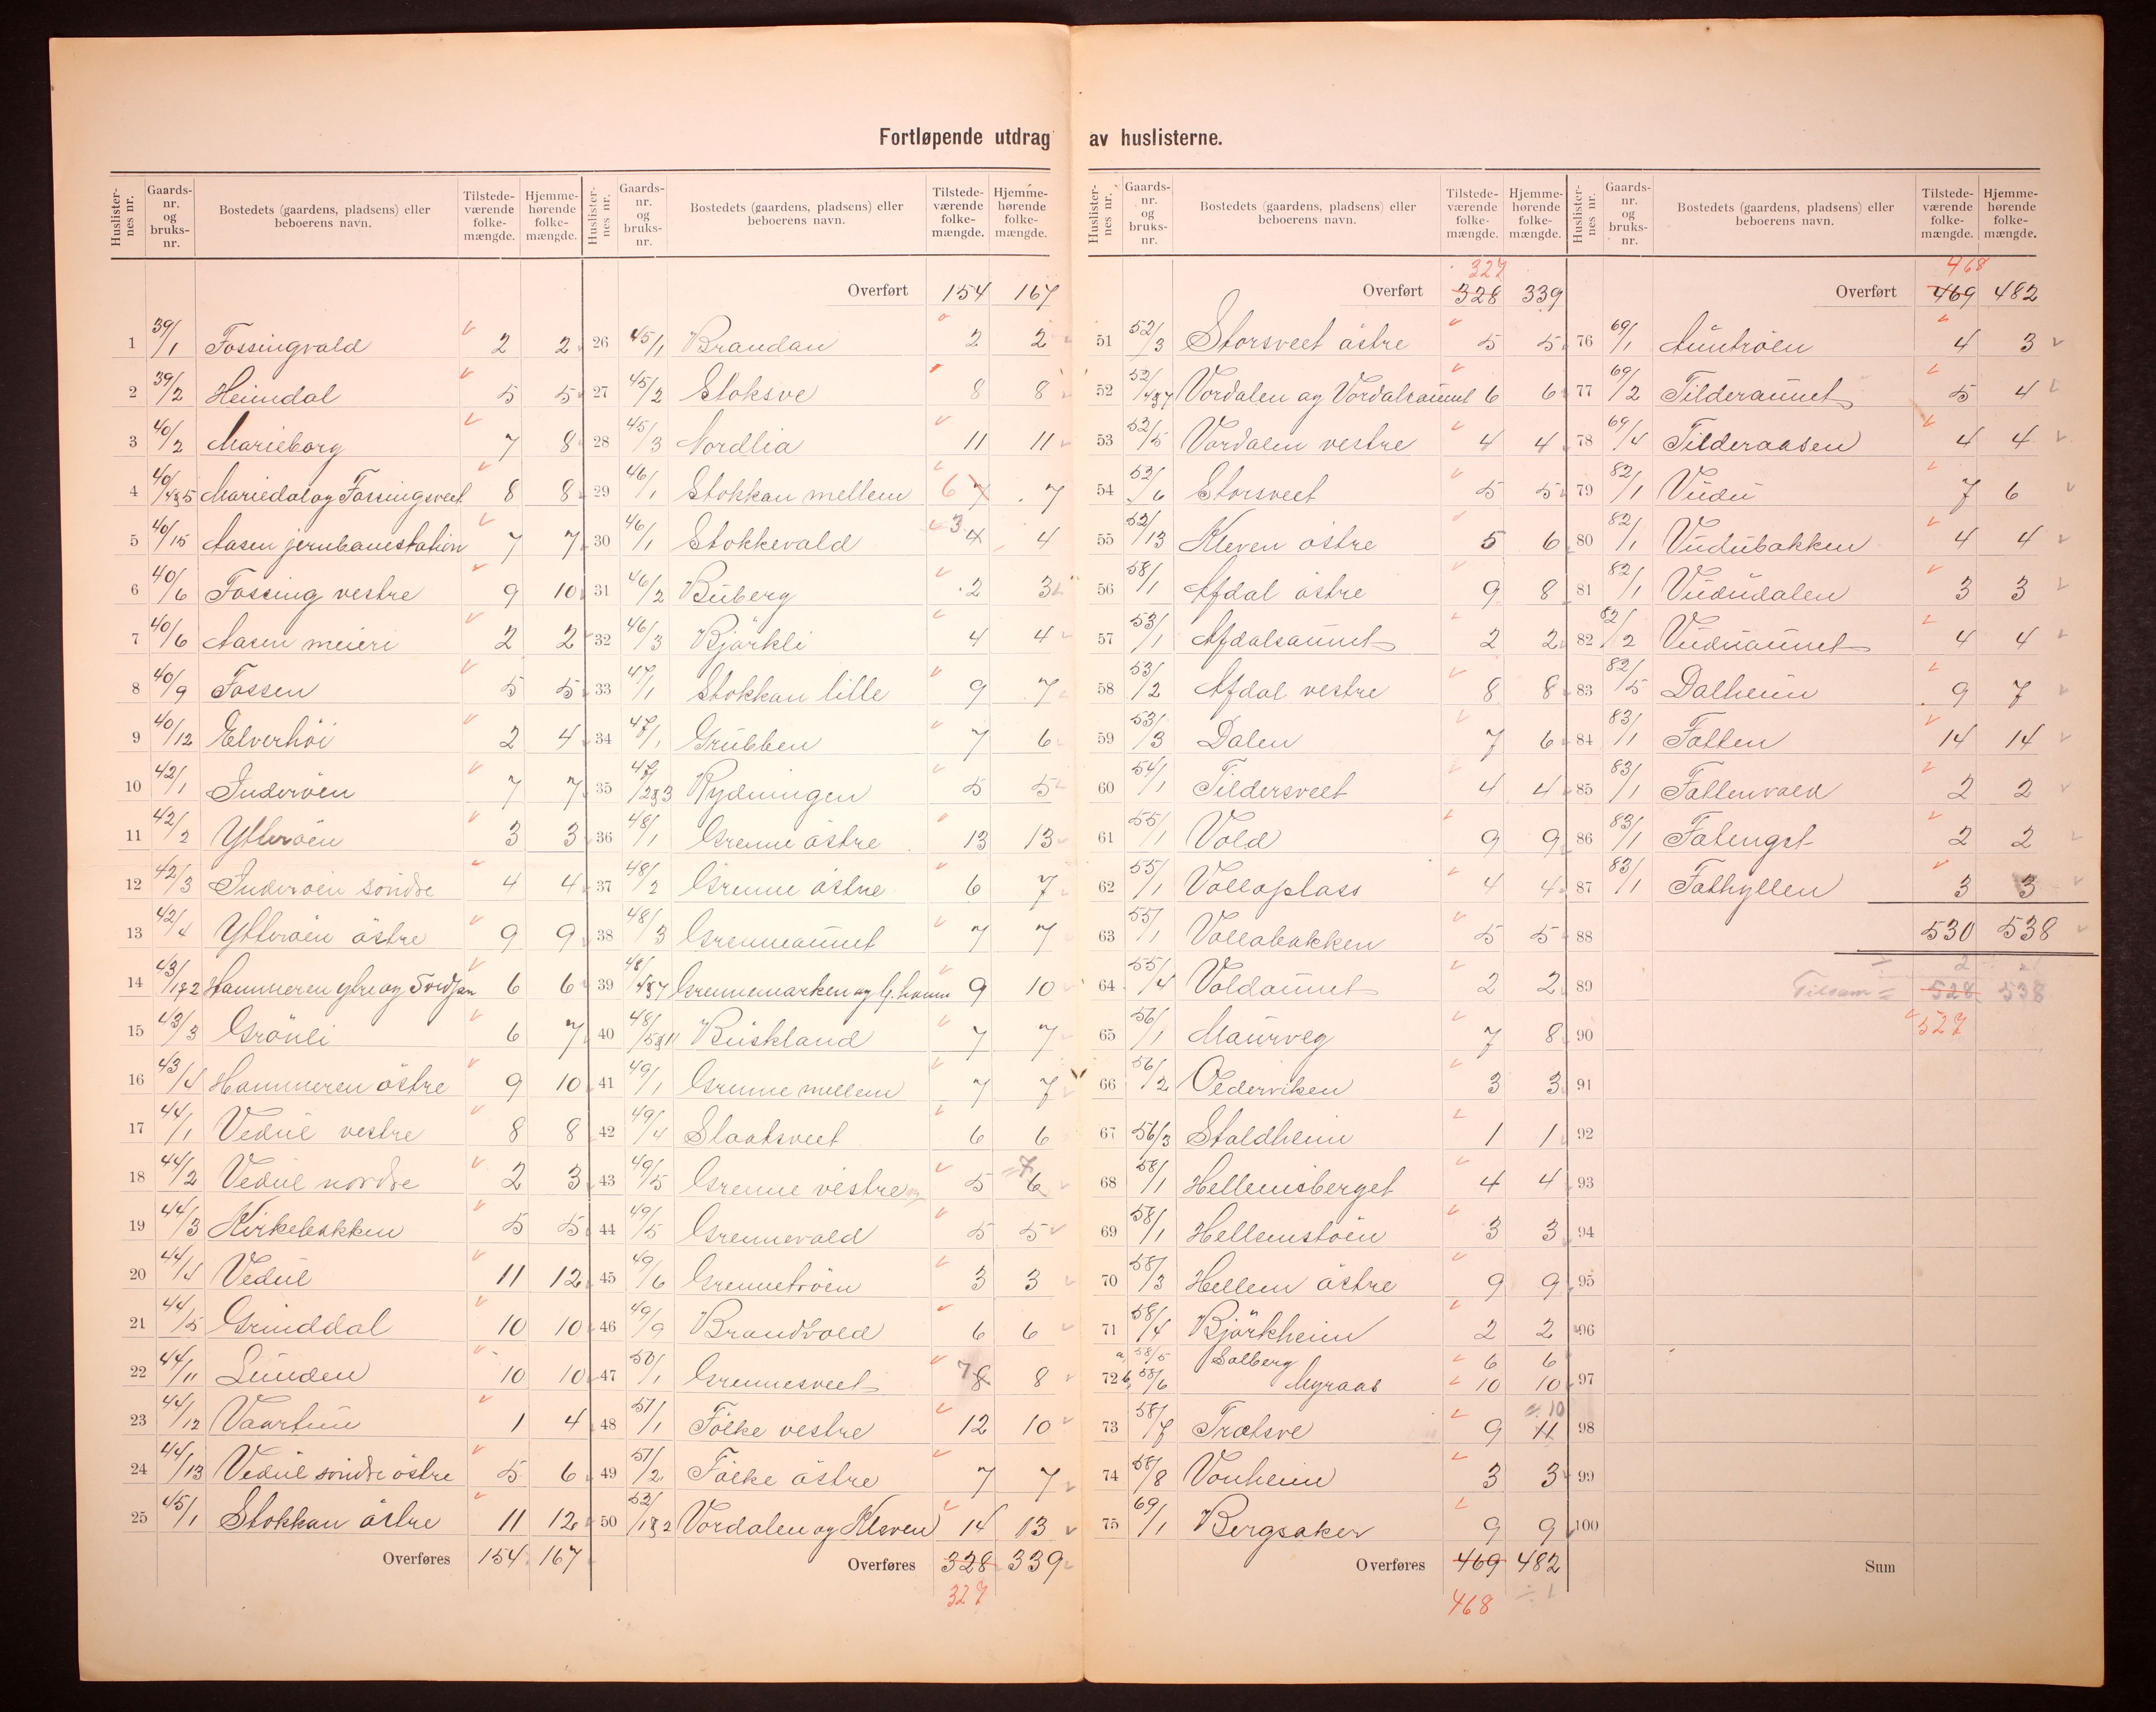 Fortløpende utdrag av huslisterne.
Huslisternes nr. Gaards-nr. og bruks-nr. Bostedets (gaardens, pladsens) eller beboerens navn. Tilstede-værende folke-mængde. Hjemme-hørende folke-mængde.
Overført 154 167
1 39/1 Fossingvald 2 2
2 39/2 Heimdal 5 5
3 40/2 Marieborg 7 8
4 40/4&5 Mariedal og Fossingsveet 8 8
5 40/15 Aasen jernbanestation 7 7
6 40/6 Fossing vestre 9 10
7 40/6 Aasen meieri 2 2
8 40/9 Fossen 5 5
9 40/12 Elverhöi 2 4
10 42/1 Inderöen 7 7
11 42/2 Ytteröen 3 3
12 42/3 Inderöen söndre 4 4
13 42/4 Ytteröen östre 9 9
14 43/1&2 Hammeren ytre og 6 6
15 43/3 Grönli 6 7
16 43/4 Hammeren östre 9 10
17 44/1 Vedul vestre 8 8
18 44/2 Vedul nordre 2 3
19 44/3 Kirkebakken 5 5
20 44/4 Vedul 11 12
21 44/5 Grinddal 10 10
22 44/11 Lunden 10 10
23 44/12 Vaartun 1 4
24 44/13 Vedul söndre östre 5 6
25 45/1 Stokkan östre 11 12
Overføres 154 167
26 45/1 Brandan 2 2
27 45/2 Stoksve 8 8
28 45/3 Nordlia 11 11
29 46/1 Stokkan mellem 6 7 7
30 46/1 Stokkevald 3 4 4
31 46/2 Buberg 2 3
32 46/3 Björkli 4 4
33 47/1 Stokkan lille 9 7
34 47/1 Grubben 7 6
35 47/2&3 Rydningen 5 5
36 48/1 Grenne östre 13 13
37 48/2 Grenne östre 6 7
38 48/3 Grenneaunet 7 7
39 48/4&7 Grennemarken og G. 9 10
40 48/5&11 Buskland 7 7
41 49/1 Grenne mellem 7 7
42 49/4 Slaatsveet 6 6
43 49/5 Grenne vestre 5 7 6
44 49/5 Grennevald 5 5
45 49/6 Grennetröen 3 3
46 49/9 Brandvold 6 6
47 50/1 Grennesveet 7 8 8
48 51/1 Fölke vestre 12 10
49 51/2 Fölke östre 7 7
50 52/1&2 Vordalen og Kleven 14 13
Overføres 328 339
327
327
Overført 328 339
51 52/3 Storsveet östre 5 5
52 52/4&7 Vordalen og Vordalsaunet 6 6
53 52/5 Vordalen vestre 4 4
54 52/6 Storsveet 5 5
55 52/13 Kleven östre 5 6
56 58/1 Afdal östre 9 8
57 53/1 Afdalsaunet 2 2
58 53/2 Afdal vestre 8 8
59 53/3 Dalen 7 6
60 54/1 Tildersveet 4 4
61 55/1 Vold 9 9
62 55/1 Vollaplass 4 4
63 55/1 Vollabakken 5 5
64 55/4 Voldaunet 2 2
65 56/1 Maurveg 7 8
66 56/2 Oederviken 3 3
67 56/3 Staldheim 1 1
68 58/1 Hellemsberget 4 4
69 58/1 Hellemstöen 3 3
70 58/3 Hellem östre 9 9
71 58/4 Björkheim 2 2
72 a, 58/5 Solberg 6 6
b, 58/6 Myraas 10 10
73 58/7 Trotsve 9 11 10
74 58/8 Vonheim 3 3
75 69/1 Bergsaker 9 9
Overføres 469 482
468 ÷ 1
468
Overført 469 482
76 69/1 Auntröen 4 3
77 69/2 Tilderaunet 5 4
78 69/4 Tilderaasen 4 4
79 82/1 Vudu 7 6
80 82/1 Vudubakken 4 4
81 82/1 Vududalen 3 3
82 82/2 Vuduaunet 4 4
83 82/5 Dalheim 9 7
84 83/1 Fatten 14 14
85 83/1 Fattenvald 2 2
86 83/1 Fatenget 2 2
87 83/1 Fathyllen 3 3
88 530 538
÷ 2
89 Tilsam = 528 538
90 527
91
92
93
94
95
96
97
98
99
100
Sum